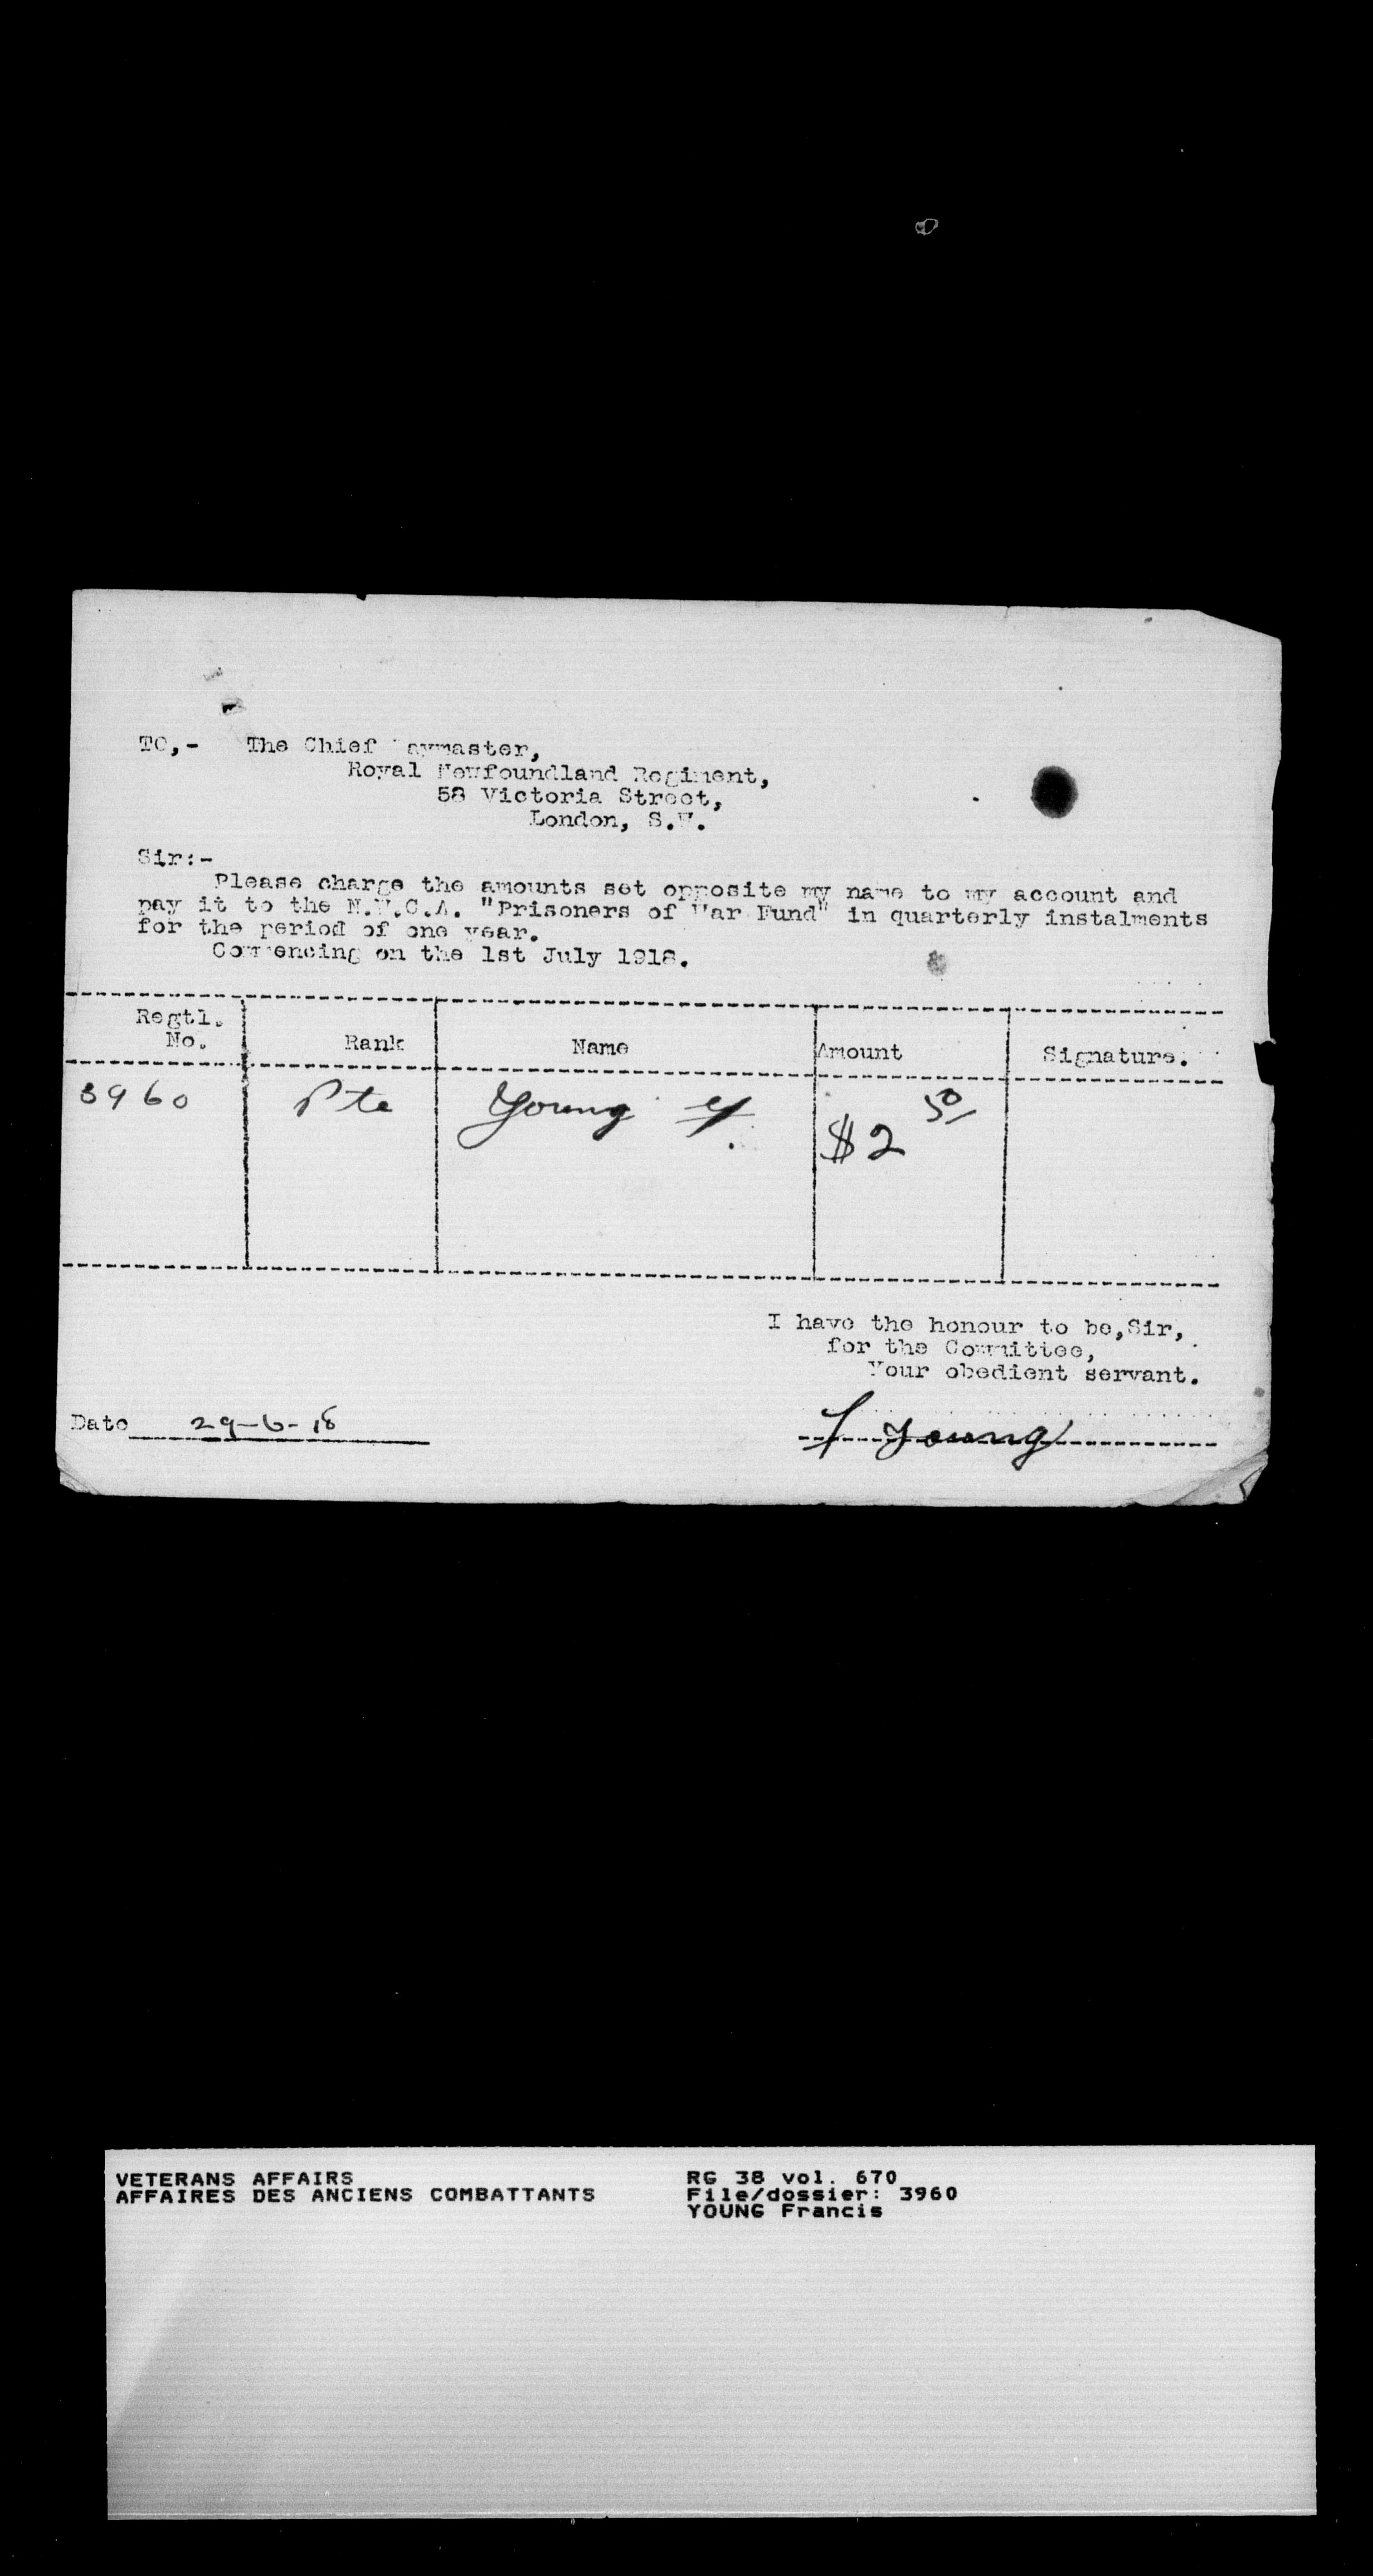 TO,- The Chief Paymaster,
Royal Newfoundland Regiment,
58 Victoria Street,
London, S.W.
Sir:-
Please charge the amounts set opposite my name to my account and
pay it to the N.W.C.A. "Prisoners of War Fund" in quarterly instalments
for the period of one year.
Commencing on the 1st July 1918.
Regtl. No. Rank Name Amount Signature.
3960 Pte Young F. $2 50
I have the honour to be,Sir,
for the Committee,
Your obedient servant.
Date 29-6-18 F Young
VETERANS AFFAIRS RG 38 vol. 670
AFFAIRES DES ANCIENS COMBATTANTS File/dossier: 3960
YOUNG Francis